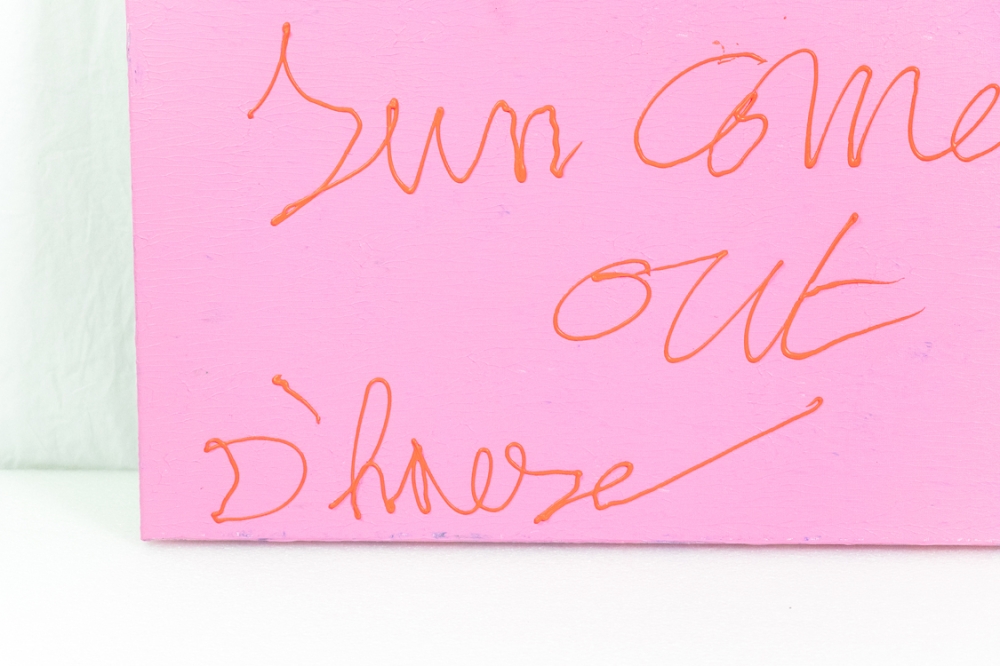 Sun Come
out
D'haese